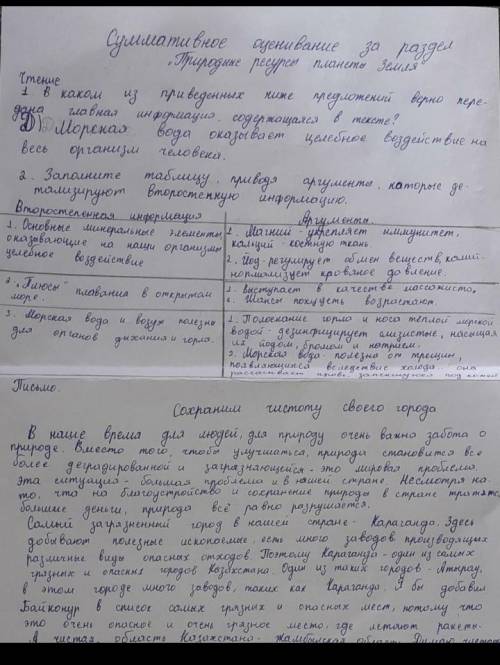 Суммативное оценивание за раздел
"Природные ресурсы планеты Земля"
Чтение
1. В каком из приведенных ниже предложений верно пере-
дана главная информация, содержащаяся в тексте?
D) Морская вода оказывает целебное воздействие на
весь организм человека.
2. Заполните таблицу, приводя аргументы, которые де-
тализируют второстепенную информацию.
Второстепенная информация
1. Основные минеральные элементы,
оказывающие на наш организм
целебное воздействие
Аргументы.
1. Магний - укрепляет иммунитет,
кальций - костную ткань.
2. Йод - регулирует обмен веществ, калий -
нормализует кровяное давление.
2. "Плюсы" плавания в открытом
море.
1. Выступает в качестве массажиста.
2. Шансы похудеть возрастают.
3. Морская вода и воздух полезны
для органов дыхания и горла.
1. Полоскание горла и носа тёплой морской
водой - дезинфицирует слизистые, насыщая
их йодом, бромом и натрием.
2. Морская вода полезна от трещин,
появляющихся вследствие холода. она
рассасывает кровь, запекшуюся под кожей
Письмо.
Сохраним чистоту своего города
В наше время для людей, для природы очень важна забота о
природе. Вместо того, чтобы улучшаться, природа становится всё
более деградированной и загрязняющейся - это мировая проблема.
эта ситуация - большая проблема и в нашей стране. Несмотря на
то, что на благоустройство и сохранение природы в стране тратятся
большие деньги, природа всё равно разрушается.
Самый загрязненный город в нашей стране - Караганда. Здесь
добывают полезные ископаемые, есть много заводов производящих
различные виды опасных отходов. Поэтому Караганда - один из самых
грязных и опасных городов Казахстана. Один из таких городов - Атырау,
в этом городе много заводов, таких как Караганда. Я бы добавил
Байконур в список самых грязных и опасных мест, потому что
это очень опасное и очень грязное место, где летают ракеты.
А чистая область Казахстана - Жамбылская область. Думаю,